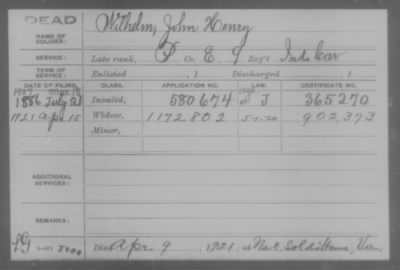 DEAD
NAME OF SOLDIER: Wilhelm, John Henry
SERVICE: Late rank, P Co. E, 9 Reg't Ind. Cav
TERM OF SERVICE: Enlisted , 1 Discharged , 1
DATE OF FILING. CLASS. APPLICATION NO. LAW. CERTIFICATE NO.
1886 July 21 Invalid, 580674 J 365270
1921 Apr 15 Widow, 1172802 5-1-20 902,373
Minor,
ADDITIONAL SERVICES:
REMARKS:
Died Apr 9, 1921, at Nat. Soldiers Home, Va.